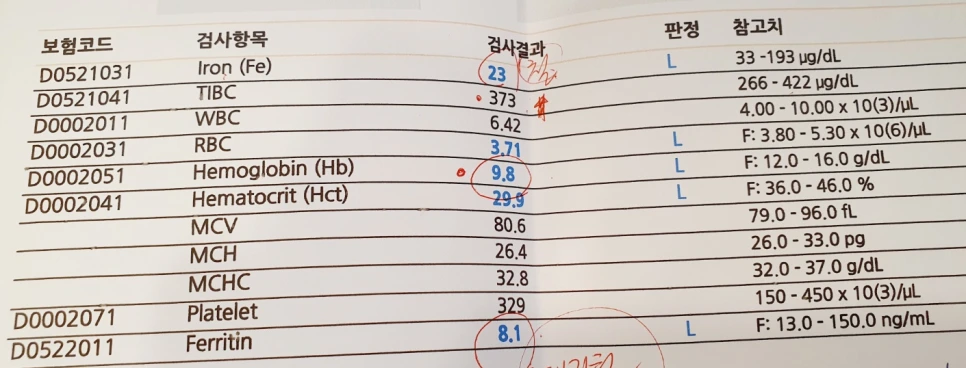 보험코드 검사항목 검사결과 판정 참고치
D0521031 Iron (Fe) 23 L 33 -193 µg/dL
D0521041 TIBC 373 266 - 422 µg/dL
D0002011 WBC 6.42 4.00 - 10.00 x 10(3)/µL
D0002031 RBC 3.71 L F: 3.80 - 5.30 x 10(6)/µL
D0002051 Hemoglobin (Hb) 9.8 L F: 12.0 - 16.0 g/dL
D0002041 Hematocrit (Hct) 29.9 L F: 36.0 - 46.0 %
MCV 80.6 79.0 - 96.0 fL
MCH 26.4 26.0 - 33.0 pg
MCHC 32.8 32.0 - 37.0 g/dL
D0002071 Platelet 329 150 - 450 x 10(3)/µL
D0522011 Ferritin 8.1 L F: 13.0 - 150.0 ng/mL